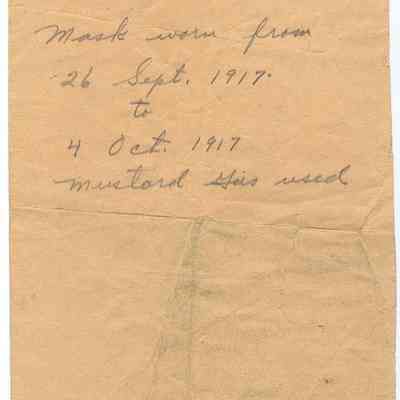 Mask worn from
26 Sept. 1917.
to
4 Oct. 1917
Mustard Gas used